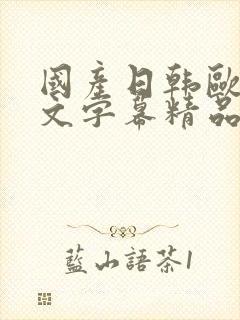 國產日韩歐
文字幕精品
藍山語茶1